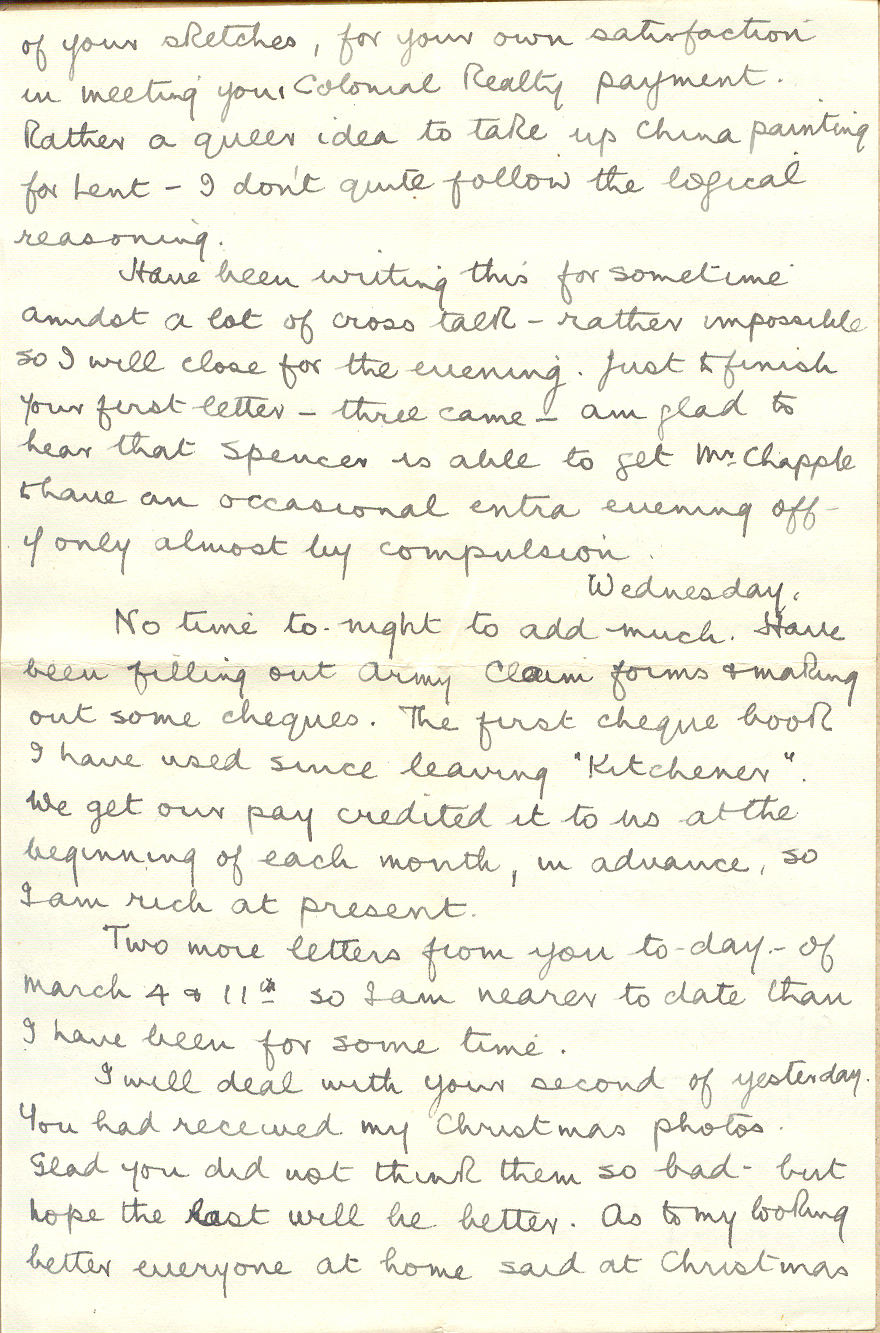 of your sketches, for your own satisfaction
in meeting your Colonial Realty payment.
Rather a queer idea to take up China painting
for Lent - I don't quite follow the logical
reasoning.
Have been writing this for sometime
amidst a lot of cross talk - rather impossible
so I will close for the evening. Just to finish
your first letter - three came - am glad to
hear that Spencer is able to get Mr. Chapple
to have an occasional extra evening off -
if only almost by compulsion.
Wednesday.
No time to-night to add much. Have
been filling out Army Claim forms & making
out some cheques. The first cheque book
I have used since leaving "Kitchener".
We get our pay credited it to us at the
beginning of each month, in advance, so
I am rich at present.
Two more letters from you to-day - of
March 4 & 11th so I am nearer to date than
I have been for some time.
I will deal with your second of yesterday.
You had received my Christmas photos.
Glad you did not think them so bad - but
hope the last will be better. As to my looking
better everyone at home said at Christmas